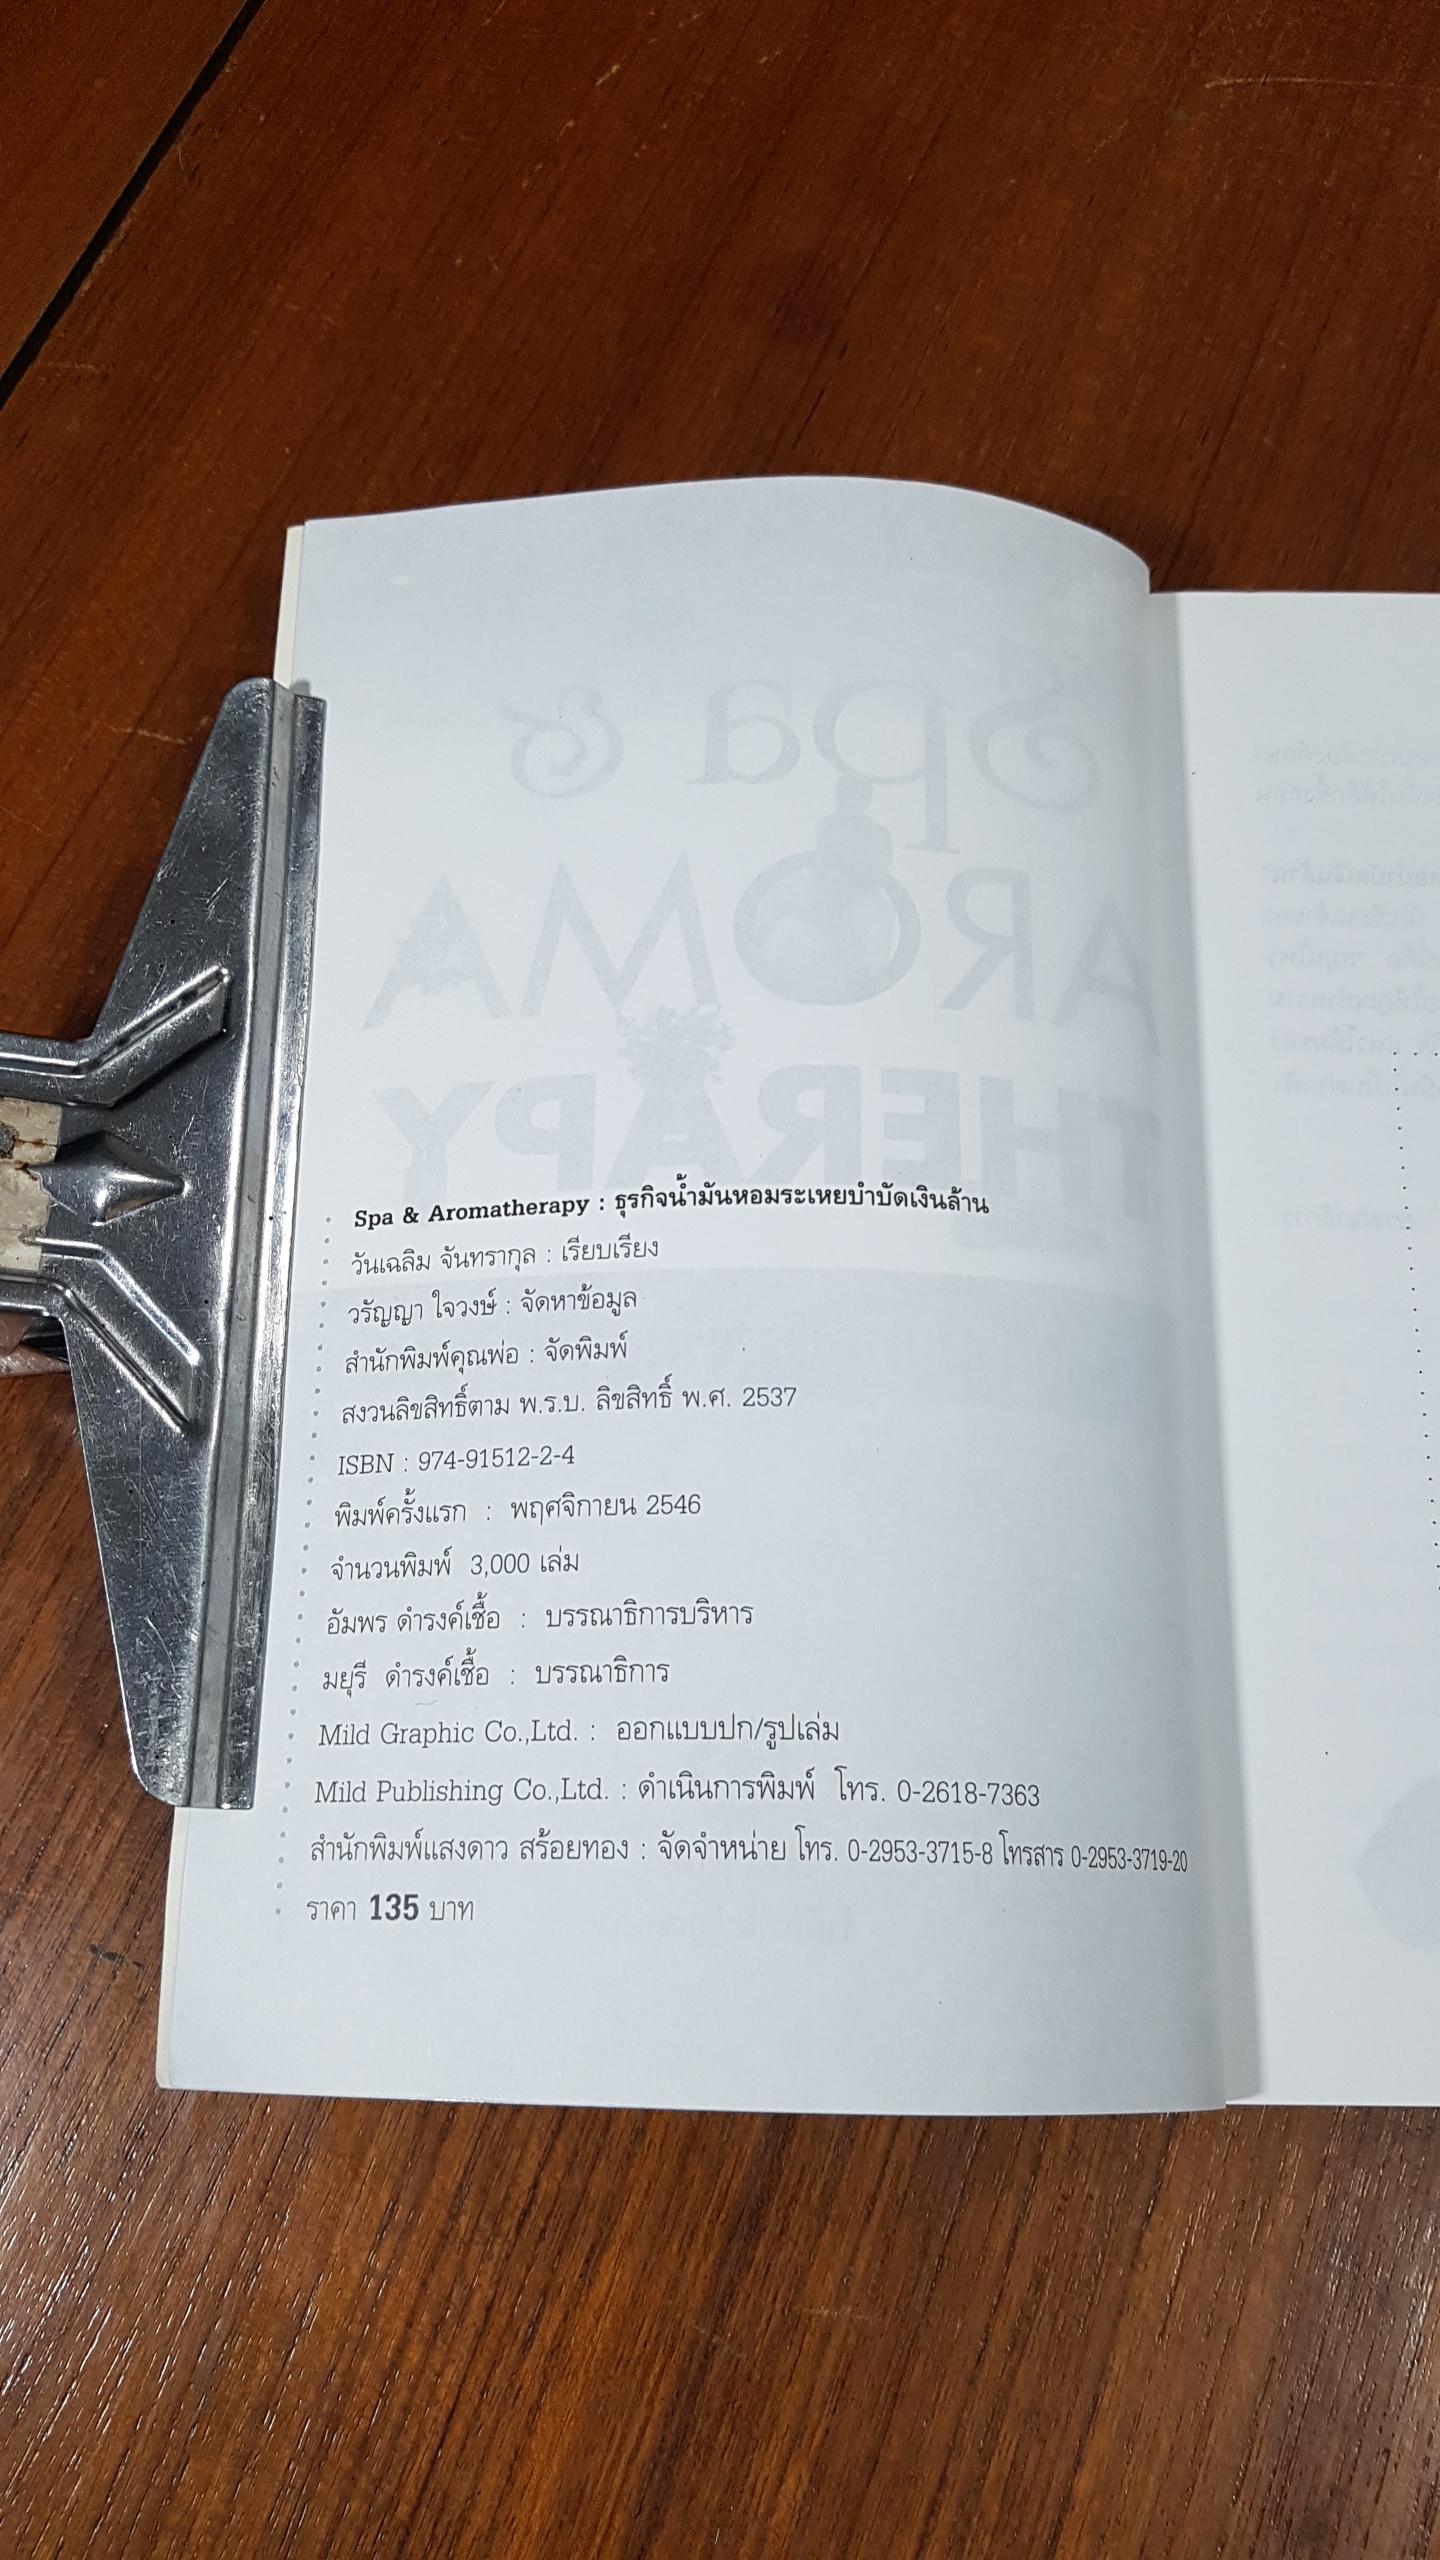 Spa & Aromatherapy : ธุรกิจน้ำมันหอมระเหยบำบัดเงินล้าน
วันเฉลิม จันทรากุล : เรียบเรียง
วรัญญา ใจวงษ์ : จัดหาข้อมูล
สำนักพิมพ์คุณพ่อ : จัดพิมพ์
สงวนลิขสิทธิ์ตาม พ.ร.บ. ลิขสิทธิ์ พ.ศ. 2537
ISBN : 974-91512-2-4
พิมพ์ครั้งแรก : พฤศจิกายน 2546
จำนวนพิมพ์ 3,000 เล่ม
อัมพร ดำรงค์เชื้อ : บรรณาธิการบริหาร
มยุรี ดำรงค์เชื้อ : บรรณาธิการ
Mild Graphic Co.,Ltd. : ออกแบบปก/รูปเล่ม
Mild Publishing Co.,Ltd. : ดำเนินการพิมพ์ โทร. 0-2618-7363
สำนักพิมพ์แสงดาว สร้อยทอง : จัดจำหน่าย โทร. 0-2953-3715-8 โทรสาร 0-2953-3719-20
ราคา 135 บาท